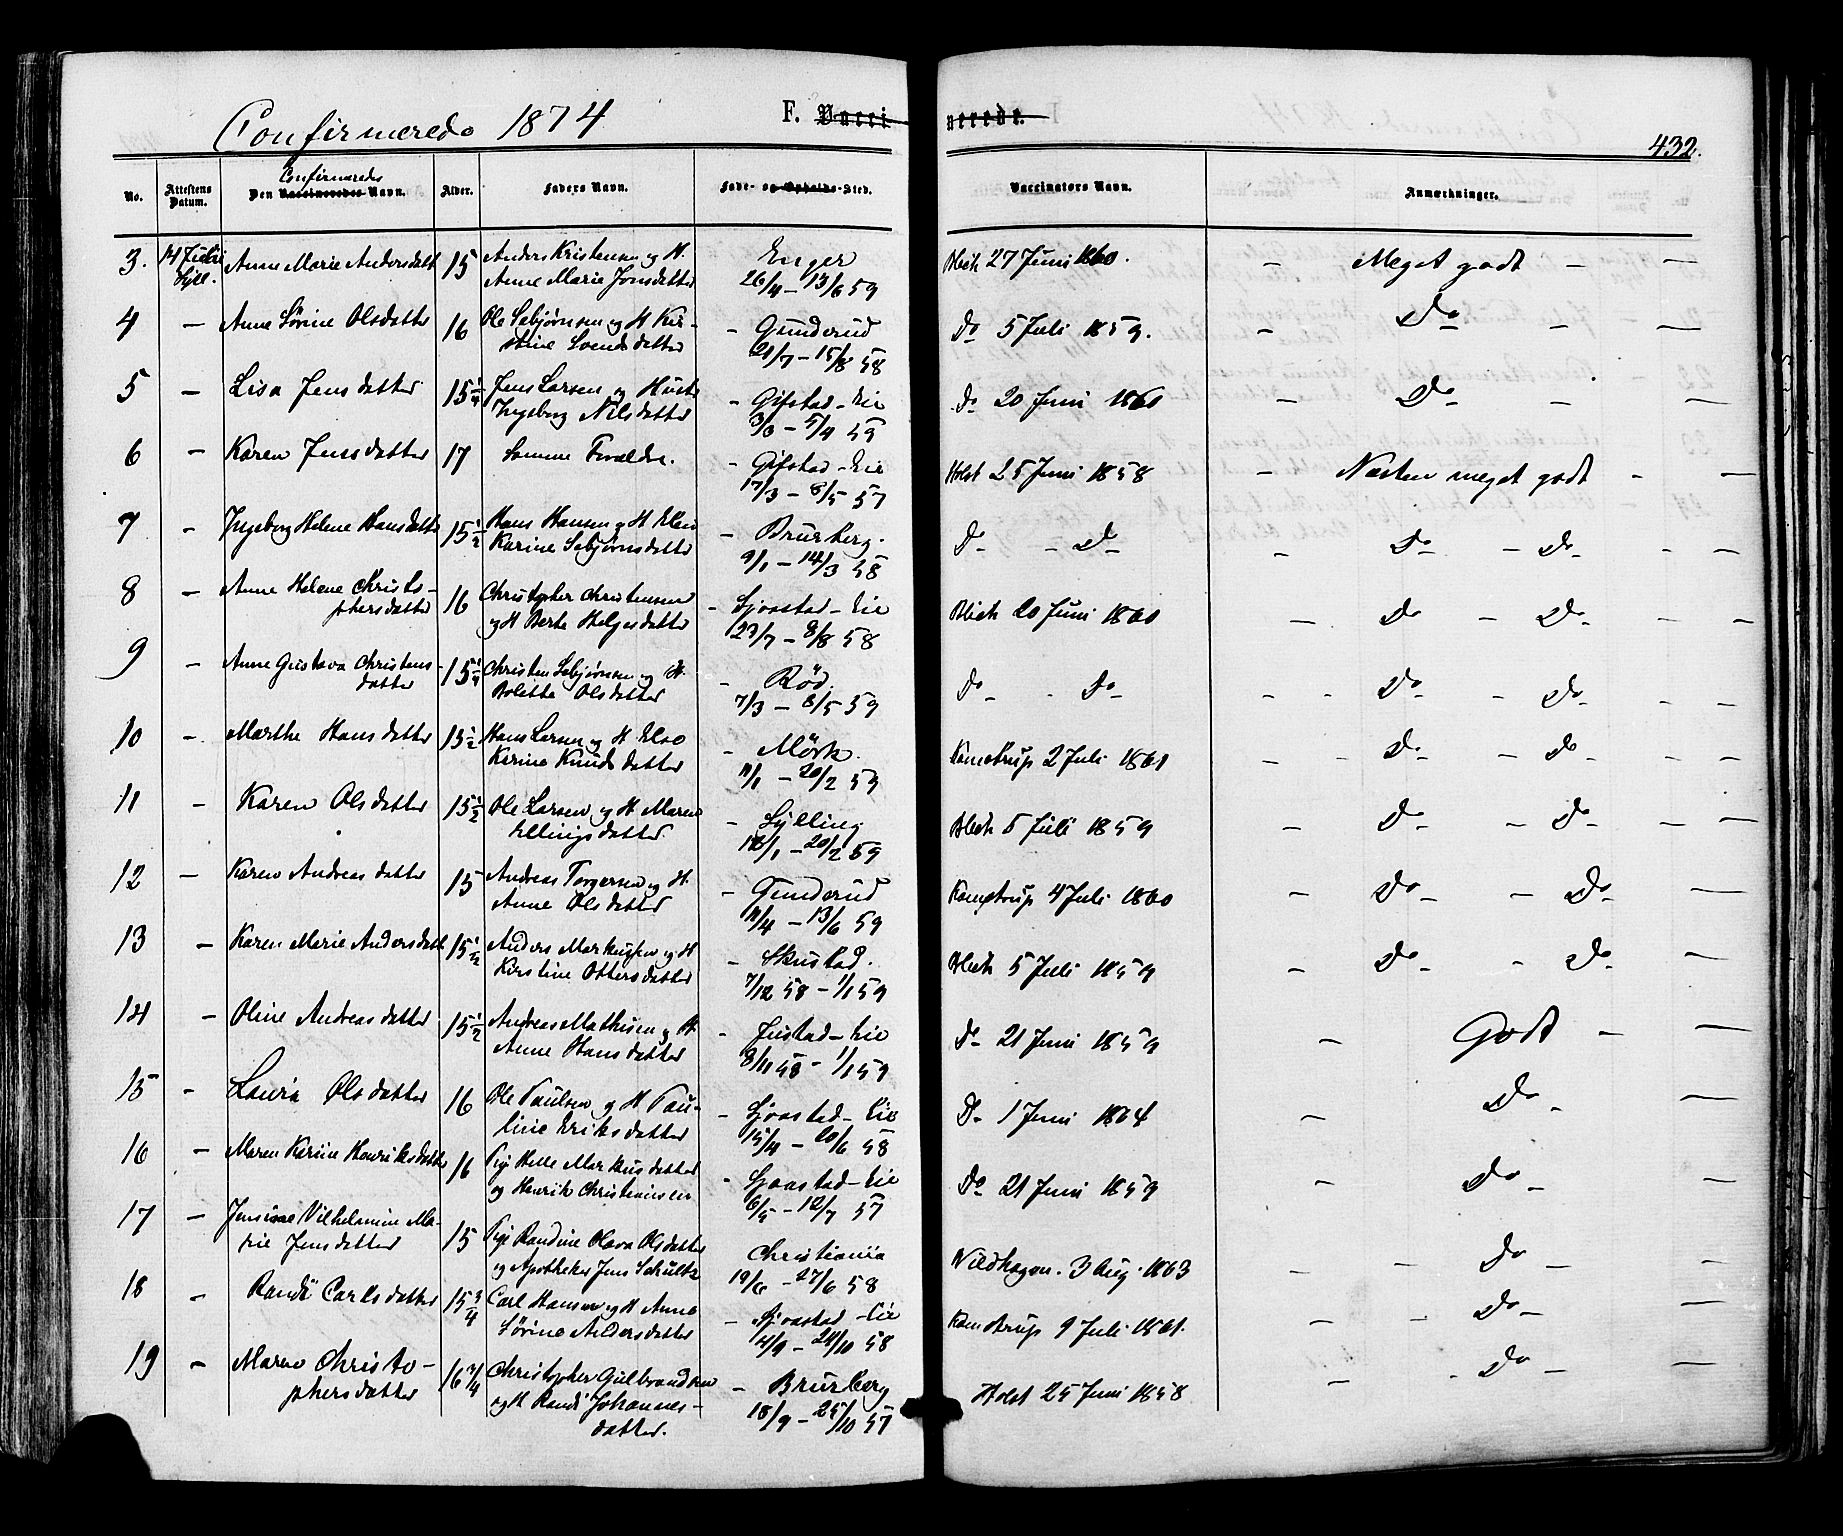 Confirmerede 1874 F. Vaccinerede.
432.
No. Attestens Datum. Confirmeredes Den Vaccineredes Navn. Alder. Faders Navn. Føde- og Opholds-Sted. Vaccinators Navn. Anmærkninger.
3. 14 Juli Anne Marie Andersdatt 15 Anders Kristensen og H. Enger Blich 27 Juni 1860. — Meget godt — —
Syll. Anne Marie Jonsdatter 26/4 — 13/6 59
4 — Anne Sørine Olsdatter 16 Ole Sebjørnsen og H Kir- — Gunderud Do 5 Juli 1859. — Do — —
stine Svendsdatter 21/7 — 15/8 58
5 — Lisa Jensdatter 15 1/4 Jens Larsen og Hustr — Gifstad-Eie Do 20 Juni 1860 — Do — —
Ingeborg Nilsdatter 3/3 — 5/4 59
6 — Karen Jensdatter 17 Samme Forældre. — Gifstad-Eie Holst 25 Juni 1858 — Næsten meget godt — —
17/3 — 8/5 57
7 — Ingeborg Helene Hansdatter 15 1/2 Hans Hansen og H Elen — Brurberg. Do — Do — Do — Do — —
Karine Sebjørnsdatter 9/1 — 14/3 58
8 — Anne Helene Christo- 16 Christopher Christensen — Sjaastad-Eie Blich 20 Juni 1860 — Do — Do — —
phersdatter og H Berte Helgesdatter 23/7 — 8/8 58
9 — Anne Gustava Christens- 15 1/4 Christen Sebjørnsen og H. — Rød. Do — Do — — Do — Do — —
datter Bolette Olsdatter 7/3 — 8/5 59
10 — Marthe Hansdatter 15 1/2 Hans Larsen og H Else — Mörk. Kamstrup 2 Juli 1861 — Do — Do — —
Karine Knudsdatter 11/1 — 20/2 59
11 — Karen Olsdatter 15 1/2 Ole Larsen og H Maren — Sylling Blich 5 Juli 1859 — Do — Do — —
Ellingsdatter. 18/1 — 20/2 59
12 — Karen Andreasdatter 15 Andreas Torgersen og H. — Gunderud Kamstrup 4 Juli 1860 — Do — Do — —
Anne Olsdatter 11/4 — 13/6 59
13 — Karen Marie Andersdatt 15 1/2 Anders Markussen og H — Skustad. Blich 5 Juli 1859 — Do — Do — —
Kirstine Ottersdatter 7/12 58 — 1/1 59
14 — Oline Andreasdatter 15 1/2 Andreas Mathisen og H. — Justad-Eie Do 21 Juni 1859 — Godt — —
Anne Hansdatter 8/11 58 — 1/1 59
15 — Laura Olsdatter 16 Ole Paulsen og H Pau- — Sjaastad-Eie Do 1 Juni 1864 — Do — —
line Eriksdatter 15/4 — 20/6 58
16 — Maren Karine Henriksdatter 16 Pige Helle Markusdatter — Sjaastad-Eie Do 21 Juni 1859 — Do — —
og Henrik Christiansen 6/5 — 12/7 57
17 — Jensine Vilhelmine Ma- 15 Pige Randine Olava Olsdatter Christiania Wildhagen. 3 Aug. 1863 — Do — —
rie Jensdatter og Apotheker Jens Schultz 19/6 — 27/6 58
18 — Randi Carlsdatter 15 3/4 Carl Hansen og H Anne — Sjaastad-Eie Kamstrup 9 Juli 1861. — Do — —
Sørine Andersdatter 4/9 — 24/10 58
19 — Maren Christo- 16 3/4 Christopher Gulbrandsen — Brurberg Holst 25 Juni 1858 — Do — —
phersdatter og H Randi Johannes- 18/9 — 25/10 57
datter.